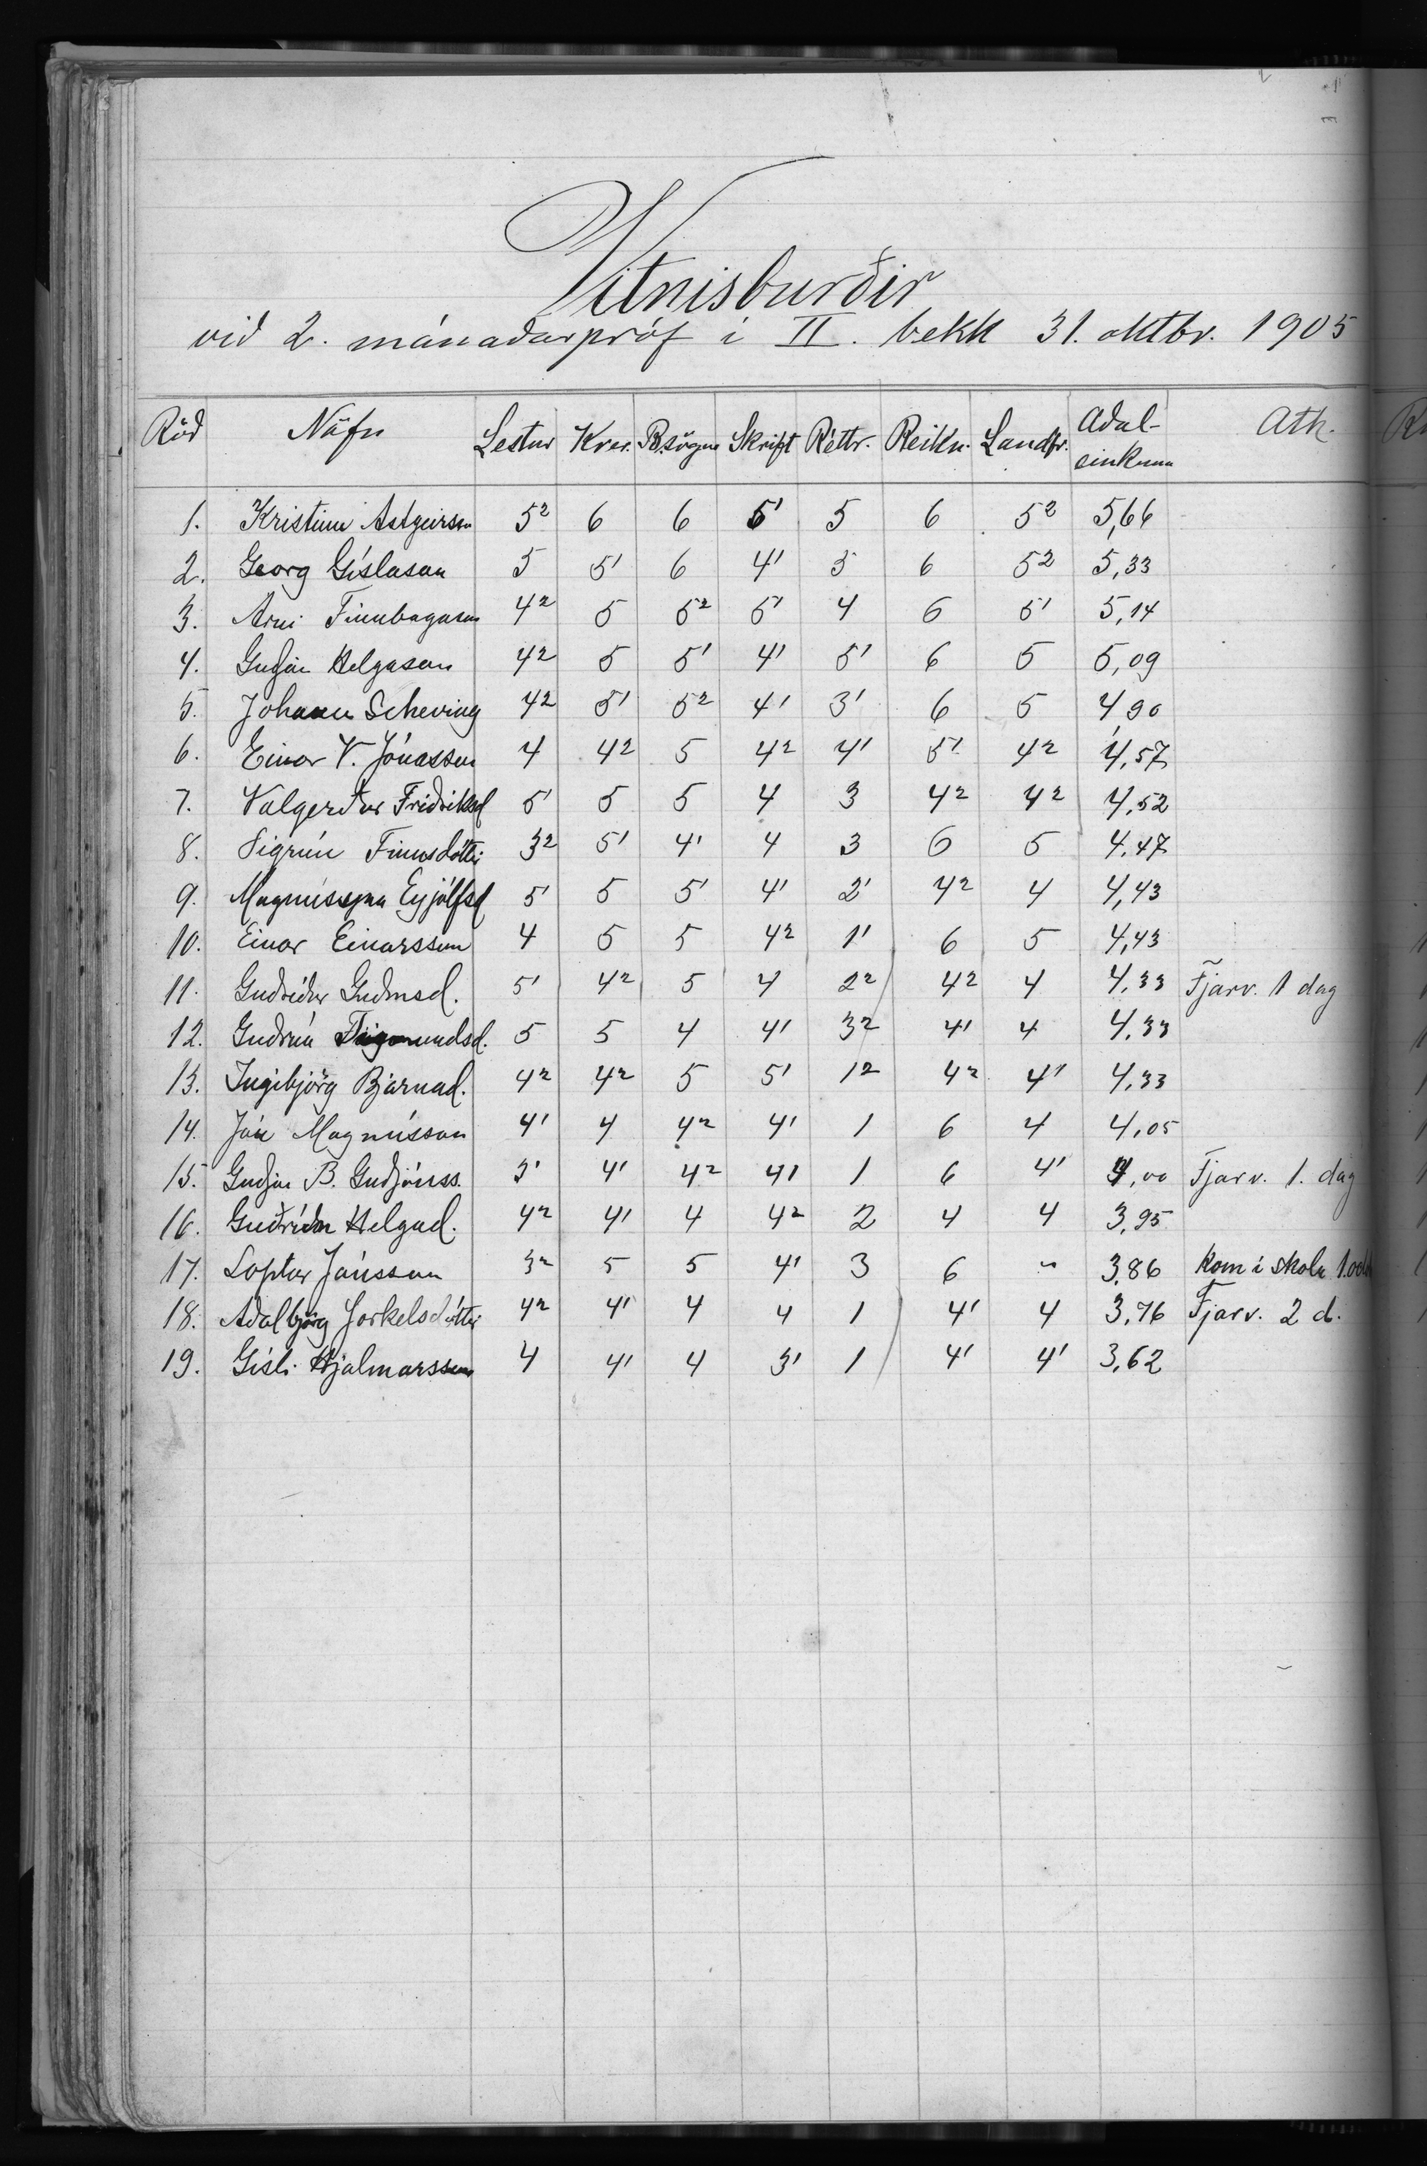 Vitnisburðir
við 2. mánaðarpróf i II. bekk 31. oktbr. 1905
Röð Nöfn Lestur Kver. B.sögur Skrift Réttr. Reikn. Landfr. Aðal-einkunn Ath.
1. Kristinn Astgeirsson 5² 6 6 5¹ 5 6 5² 5,66
2. Georg Gíslason 5 5¹ 6 4¹ 5 6 5² 5,33
3. Arni Finnbogason 4² 5 5² 5¹ 4 6 5¹ 5,14
4. Guðjón Helgason 4² 5 5¹ 4¹ 5¹ 6 5 5,09
5. Johann Scheving 4² 5¹ 5² 4¹ 3¹ 6 5 4,90
6. Einar V. Jónasson 4 4² 5 4² 4¹ 5¹ 4² 4,57
7. Valgerður Friðriksd 5¹ 5 5 4 3 4² 4² 4,52
8. Sigrún Finnsdóttir 3² 5¹ 4¹ 4 3 6 5 4.47
9. Magnúsína Eyjólfsd 5¹ 5 5¹ 4¹ 2¹ 4² 4 4,43
10. Einar Einarsson 4 5 5 4² 1¹ 6 5 4,43
11. Guðríður Guðmsd. 5¹ 4² 5 4 2² 4² 4 4,33 Fjarv. 1 dag
12. Guðrún 5 5 4 4¹ 3² 4¹ 4 4,33
13. Ingibjörg Bjarnad. 4² 4² 5 5¹ 1² 4² 4¹ 4,33
14. Jón Magnússon 4¹ 4 4² 4¹ 1 6 4 4,05
15. Guðjón B. Guðjónss. 3¹ 4¹ 4² 4¹ 1 6 4¹ 4,00 Fjarv. 1. dag
16. Guðríður Helgad. 4² 4¹ 4 4² 2 4 4 3,95
17. Loptur Jónsson 3² 5 5 4¹ 3 6 " 3,86 Kom i skola 1.
18. Aðalbjörg Þorkelsdóttir 4² 4¹ 4 4 1 4¹ 4 3,76 Fjarv. 2 d.
19. Gísli Hjalmarsson 4 4¹ 4 3¹ 1 4¹ 4¹ 3,62